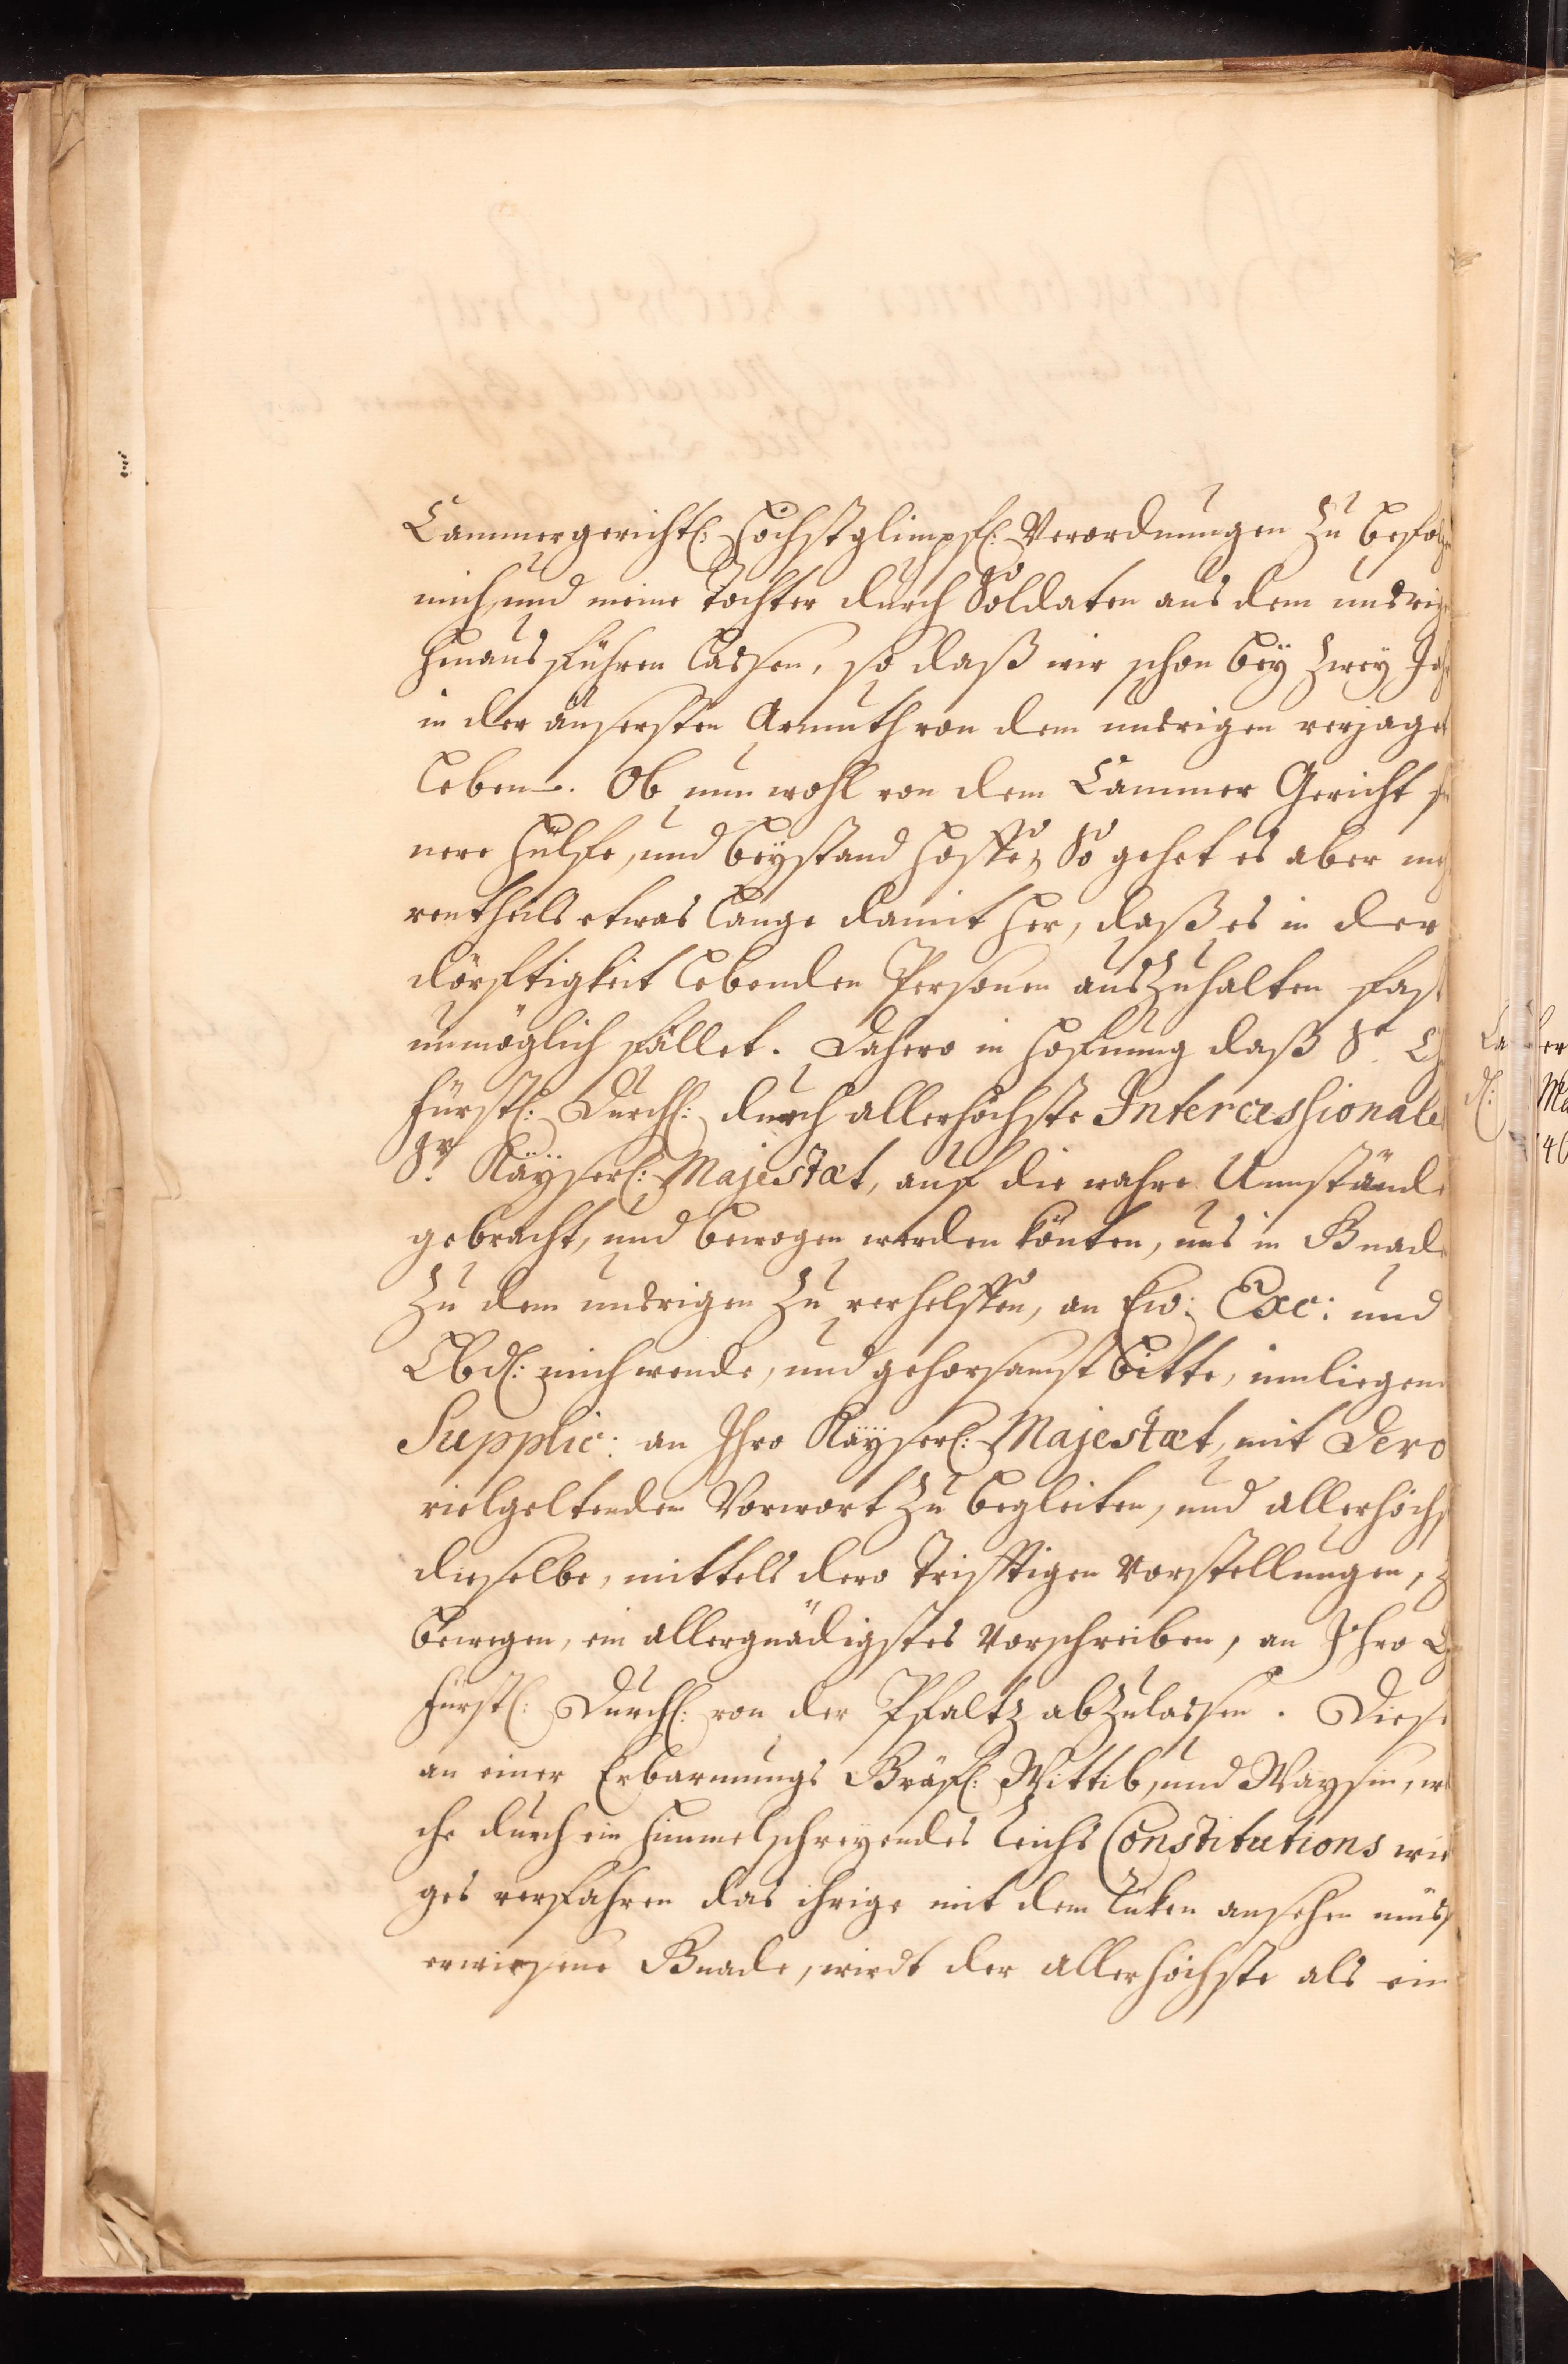 Cammergerichtl: höchstglimpfl: Verordnungen zu befolg
mich, und meine Tochter durch Soldaten aus dem unsrig
hinaus führen lassen, so daß wir schon bey zwey Jah
in der äusersten Armuth von dem unsrigen verjaget
leben. Ob nun wohl von dem Cammer Gericht fer
nere hülfe, und beÿstand hoffe, So gehet es aber meh
rentheils etwas lange damit her, daß es in der
dörftigkeit lebenden Personen auszuhalten fast
unmöglich fället. Dahero in hofnung daß Sr. Ch
fürstl: Durchl: durch allerhöchste Intercessionale
Sr. Käÿserl: Majestæt, auf die wahre Umstände
gebracht, und bewogen werden könten, uns in Gnade
zu dem unsrigen zu verhelffen, an Ew: Exc: und
Lbd: mich wende, und gehorsamst bitte, innliegend
Supplic: an Ihro Käÿserl: Majestæt, mit Dero
vielgeltenden Vorwort zu begleiten, und allerhöchst
dieselbe, mittels dero trifftigen Vorstellungen, z
bewegen, ein allergnädigstes Vorschreiben, an Ihro Ch
fürstl: Durchl: von der Pfaltz abzulassen. Diese
an einer Erbarmungs Gräfl: Wittib, und Waysin, wel
che durch ein himmelschreyendes Reichs Constitutions wid
ges verfahren das ihrige mit dem Rüken ansehen müss
erwiesene Gnade, wirdt der allerhöchste als ein